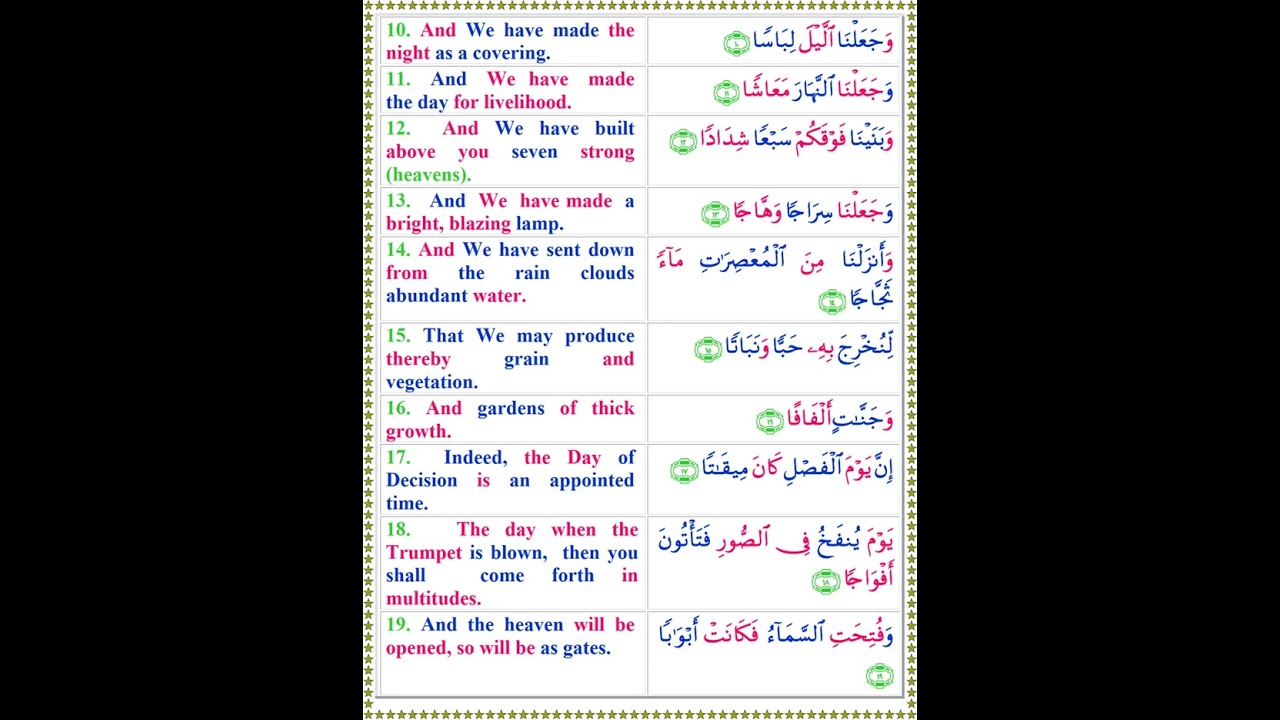 10. And We have made the
night as a covering.
وَجَعَلْنَا ٱلَّيْلَ لِبَاسًا ١٠
11. And We have made
the day for livelihood.
وَجَعَلْنَا ٱلنَّهَارَ مَعَاشًا ١١
12. And We have built
above you seven strong
(heavens).
وَبَنَيْنَا فَوْقَكُمْ سَبْعًا شِدَادًا ١٢
13. And We have made a
bright, blazing lamp.
وَجَعَلْنَا سِرَاجًا وَهَّاجًا ١٣
14. And We have sent down
from the rain clouds
abundant water.
وَأَنزَلْنَا مِنَ ٱلْمُعْصِرَٰتِ مَآءً
ثَجَّاجًا ١٤
15. That We may produce
thereby grain and
vegetation.
لِّنُخْرِجَ بِهِۦ حَبًّا وَنَبَاتًا ١٥
16. And gardens of thick
growth.
وَجَنَّـٰتٍ أَلْفَافًا ١٦
17. Indeed, the Day of
Decision is an appointed
time.
إِنَّ يَوْمَ ٱلْفَصْلِ كَانَ مِيقَـٰتًا ١٧
18. The day when the
Trumpet is blown, then you
shall come forth in
multitudes.
يَوْمَ يُنفَخُ فِى ٱلصُّورِ فَتَأْتُونَ
أَفْوَاجًا ١٨
19. And the heaven will be
opened, so will be as gates.
وَفُتِحَتِ ٱلسَّمَآءُ فَكَانَتْ أَبْوَٰبًا
١٩